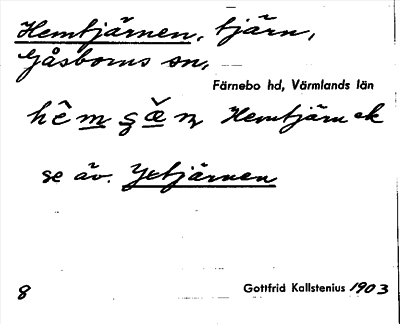 Hemtjärnen, tjärn,
Gåsborns sn,
Färnebo hd, Värmlands län
Hemtjärn ek
se äv. Yxtjärnen
8 Gottfrid Kallstenius 1903